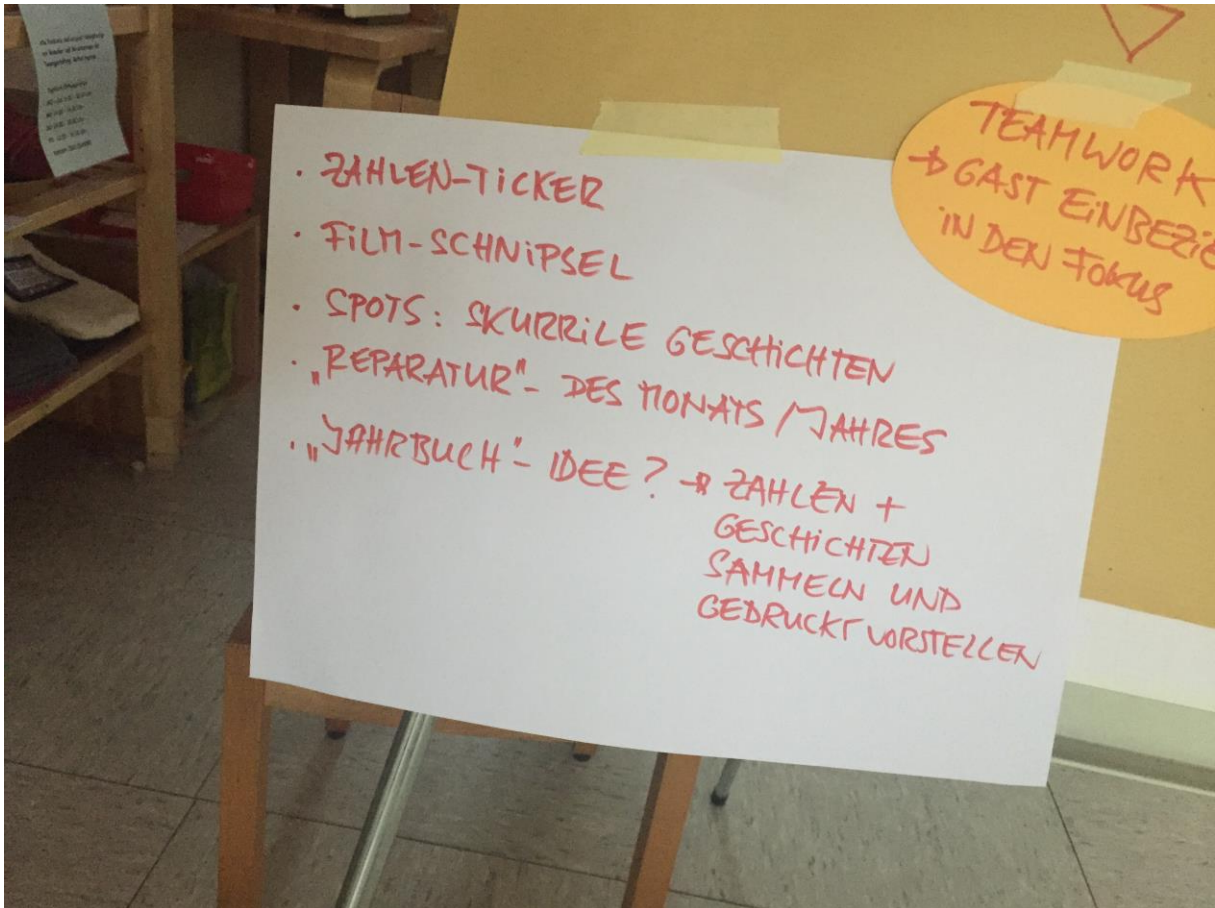 · ZAHLEN-TiCKER
· FiLM-SCHNiPSEL
· SPOTS: SKURRiLE GESCHiCHTEN
· „REPARATUR"- DES MONATS / JAHRES
· „JAHRBUCH"- IDEE? → ZAHLEN +
GESCHiCHTEN
SAMMELN UND
GEDRUCKT VORSTELLEN
TEAMWORK
→ GAST EiNBEZiE
iN DEN FOKUS